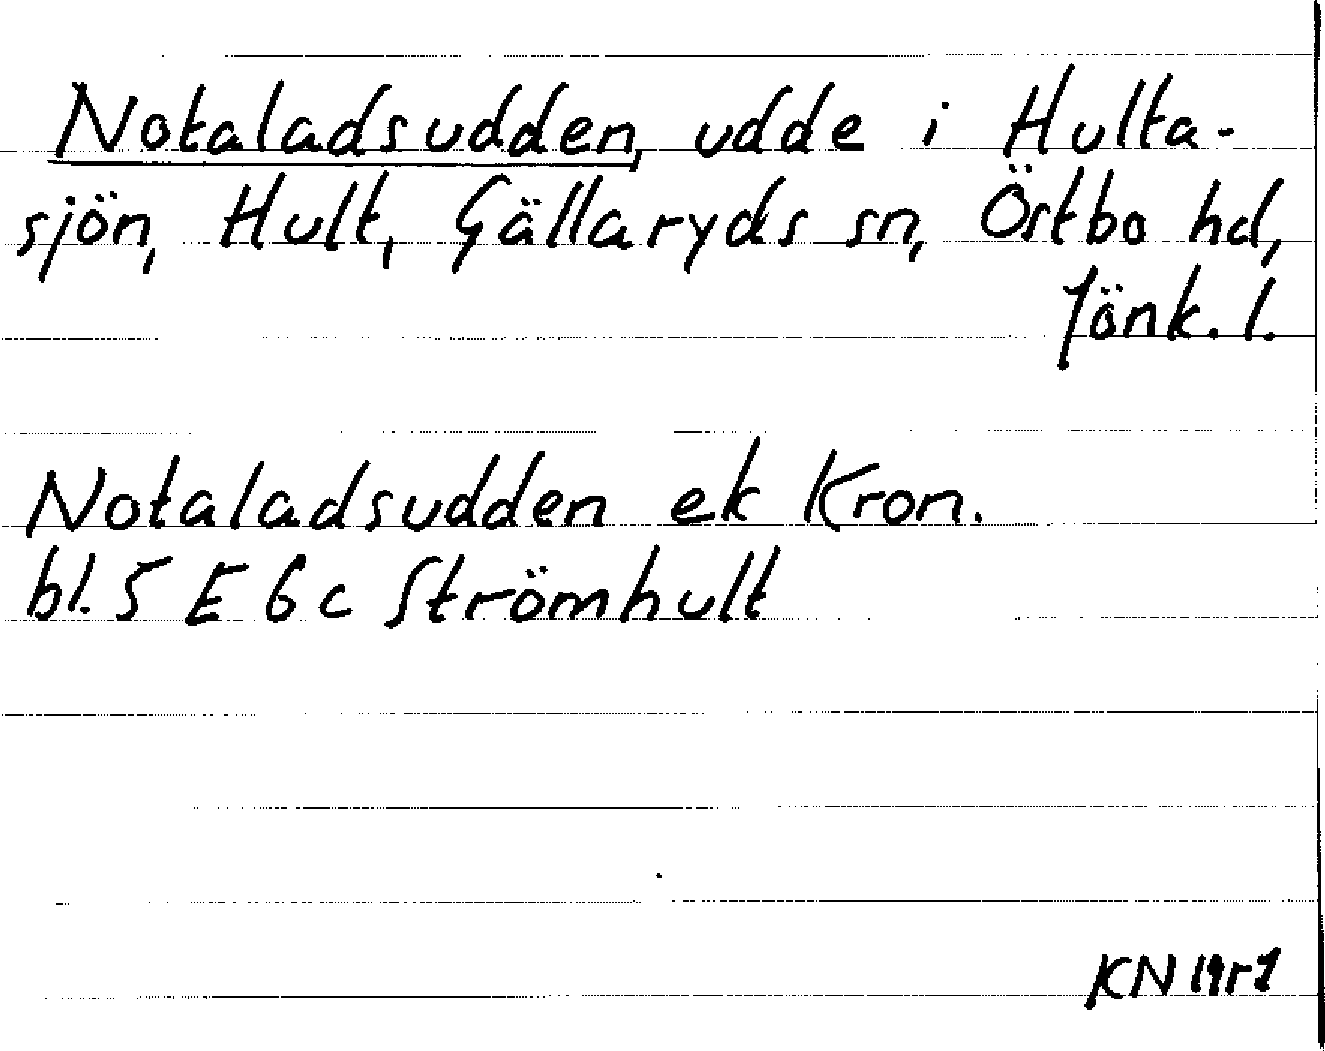 Notaladsudden, udde i Hulta-
sjön, Hult, Gällaryds sn, Östbo hd,
Jönk. l.
Notaladsudden ek Kron.
bl. 5 E 6 c Strömhult
KN